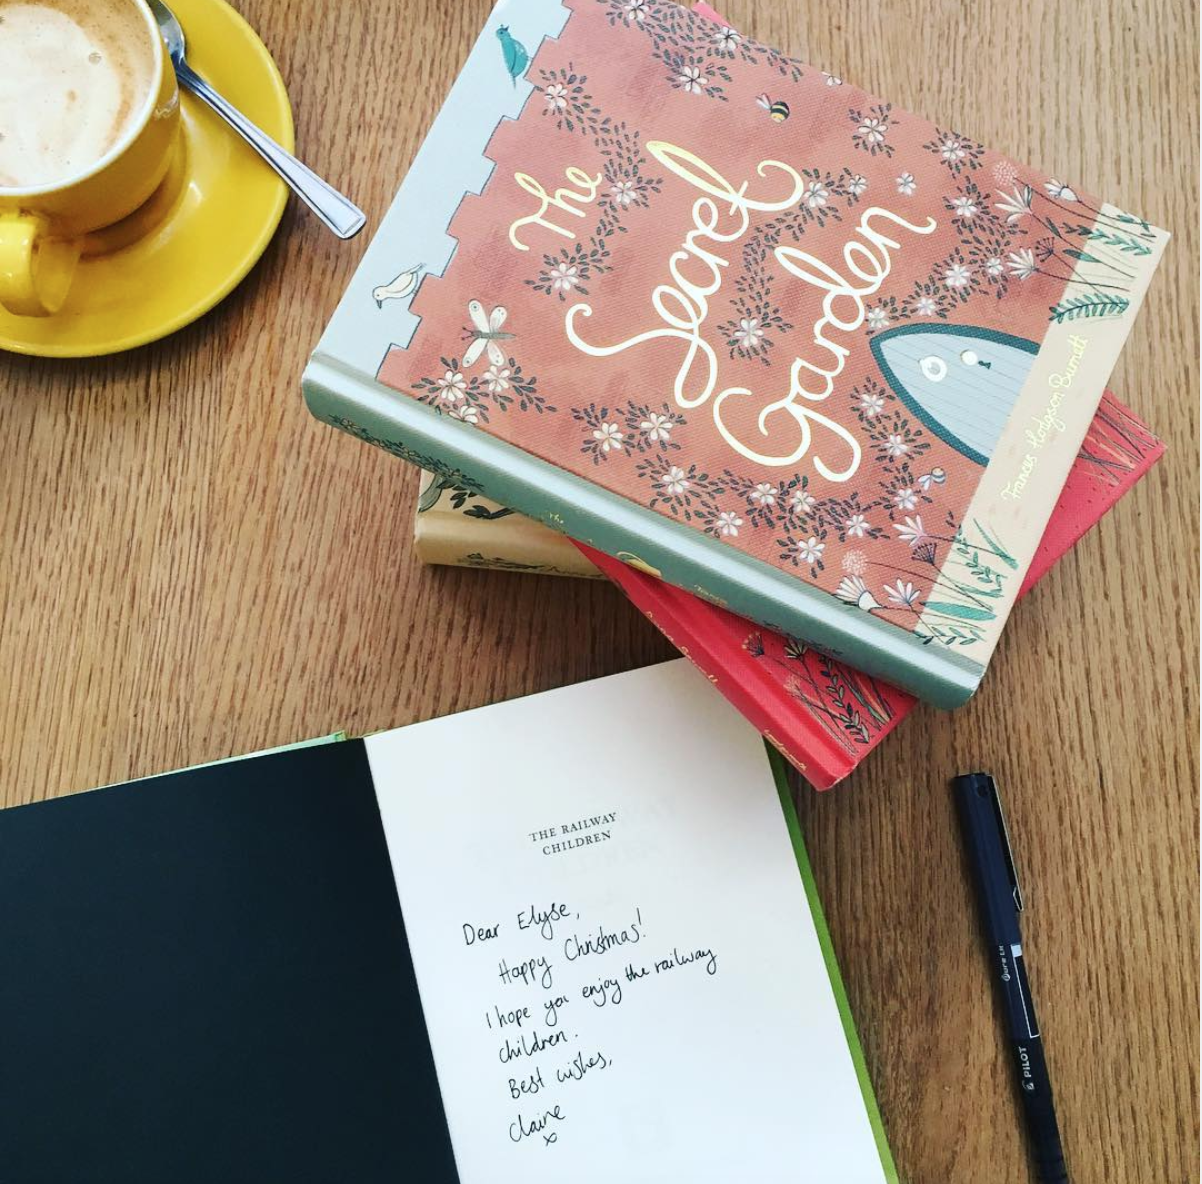 The
Secret
Garden
Frances Hodgson Burnett
The
THE RAILWAY
CHILDREN
Dear Elyse,
Happy Christmas!
I hope you enjoy the railway
children.
Best wishes,
Claire
x
PILOT